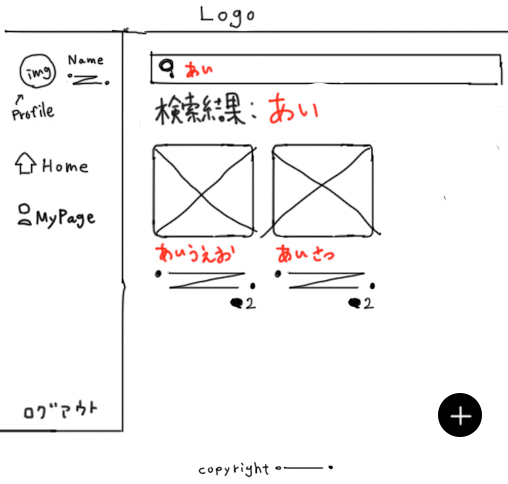 Logo
img
Name
Profile
Home
MyPage
ログアウト
あい
検索結果: あい
あいうえお
あいさつ
2
2
+
copyright